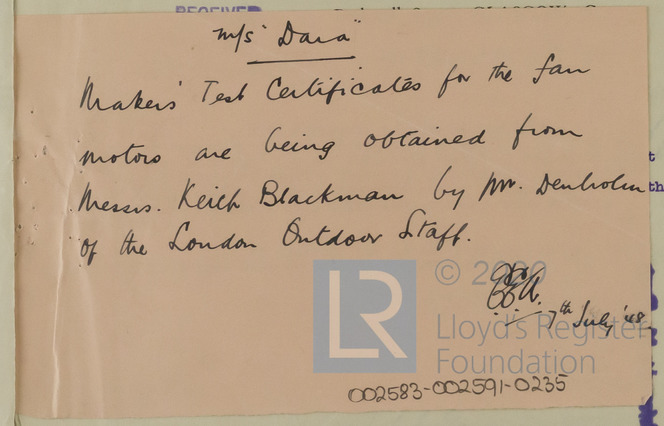 RECEIVED
m/s "Dara"
Makers' Test Certificates for the fan
motors are being obtained from
Messrs. Keith Blackman by Mr. Denholm
of the London Outdoor Staff.
7th July '48
LR
© 2020
Lloyd's Register
Foundation
002583-002591-0235